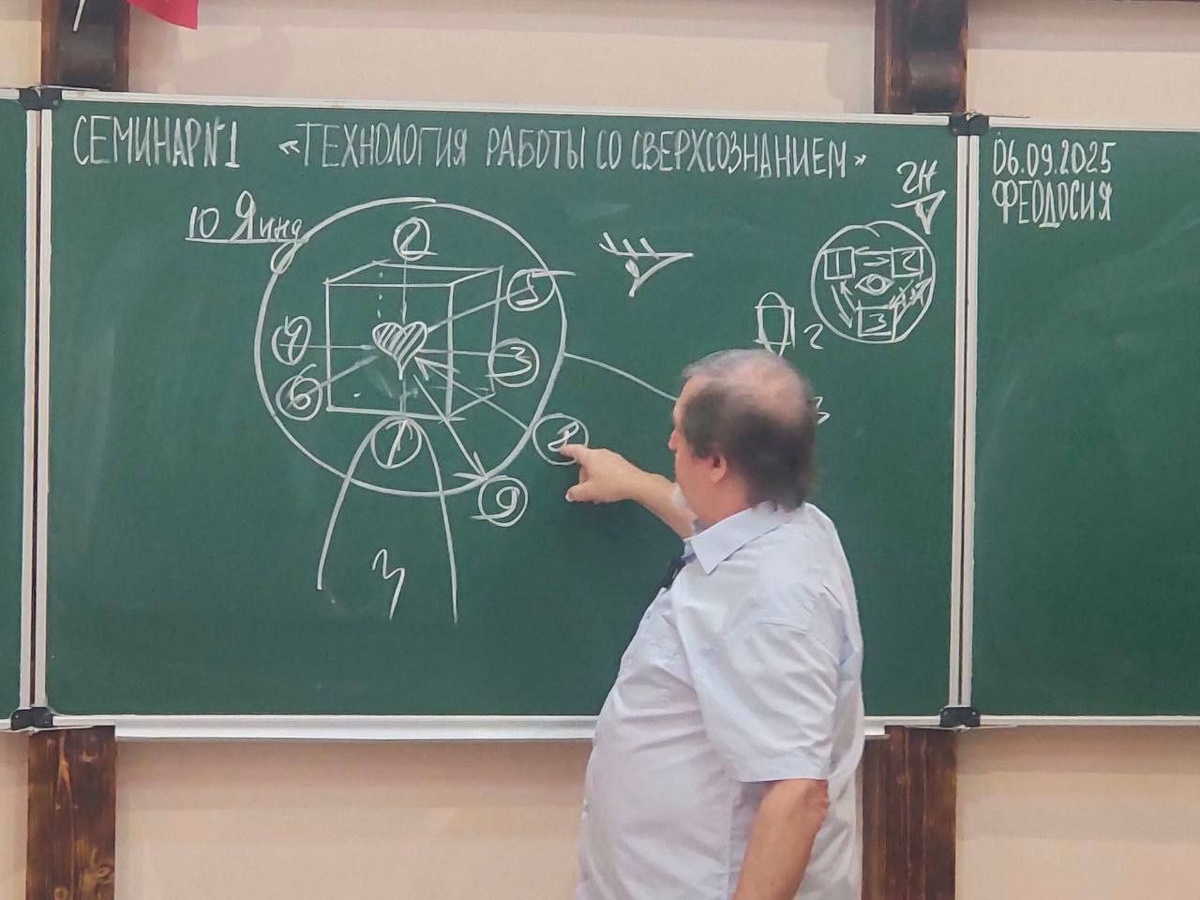 СЕМИНАР №1 «ТЕХНОЛОГИЯ РАБОТЫ СО СВЕРХСОЗНАНИЕМ»
06.09.2025
ФЕОДОСИЯ
10 Я инд
2
5
7
3
6
1
9
2
1 2
3